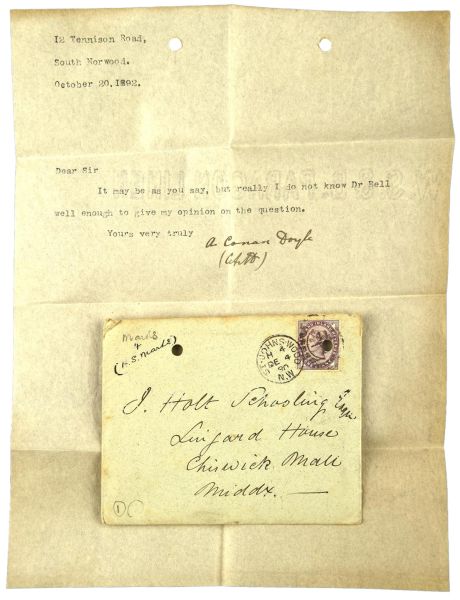 12 Tennison Road,
South Norwood.
October 20.1892.
Dear Sir
It may be as you say, but really I do not know Dr Bell
well enough to give my opinion on the question.
Yours very truly
A Conan Doyle
Marks
(H.S. Marks)
ST. JOHNS-WOOD
H 4
DE 4
90
N.W
J. Holt Schooling Esqre
Lingard House
Chiswick Mall
Middx.
1